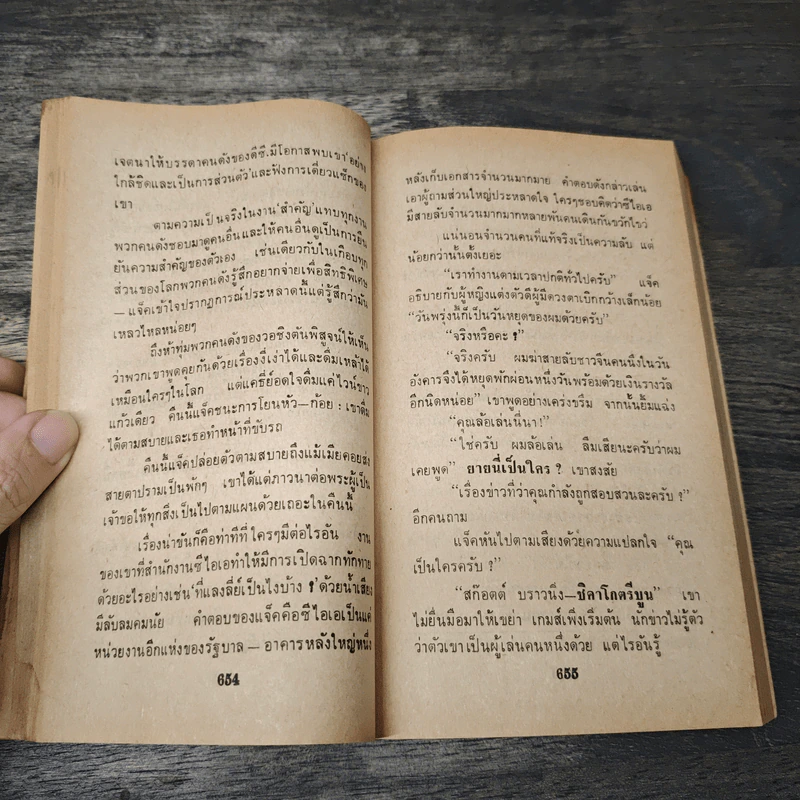 เจตนาให้บรรดาคนดังของดีซี.มีโอกาสพบเขา'อย่าง
ใกล้ชิดและเป็นการส่วนตัว'และฟังการเดี่ยวแซ็กของ
เขา
ตามความเป็นจริงในงาน'สำคัญ'แทบทุกงาน
พวกคนดังชอบมาดูคนอื่นและให้คนอื่นดูเป็นการยืน
ยันความสำคัญของตัวเอง เช่นเดียวกับในเกือบทุก
ส่วนของโลกพวกคนดังรู้สึกอยากจ่ายเพื่อสิทธิพิเศษ
— แจ็คเข้าใจปรากฏการณ์ประหลาดนี้แต่รู้สึกว่ามัน
เหลวไหลหน่อยๆ
ถึงห้าทุ่มพวกคนดังของวอชิงตันพิสูจน์ให้เห็น
ว่าพวกเขาพูดคุยกันด้วยเรื่องงี่เง่าได้และดื่มเหล้าได้
เหมือนใครๆในโลก แต่แคธี่ย์อดใจดื่มแค่ไวน์ขาว
แก้วเดียว คืนนี้แจ็คชนะการโยนหัว—ก้อย : เขาดื่ม
ได้ตามสบายและเธอทำหน้าที่ขับรถ
คืนนี้แจ็คปล่อยตัวตามสบายถึงแม้เมียคอยส่ง
สายตาปรามเป็นพักๆ เขาได้แต่ภาวนาต่อพระผู้เป็น
เจ้าขอให้ทุกสิ่งเป็นไปตามแผนด้วยเถอะในคืนนี้
เรื่องน่าขันก็คือท่าทีที่ใครๆมีต่อไรอัน งาน
ของเขาที่สำนักงานซีไอเอทำให้มีการเปิดฉากทักทาย
ด้วยอะไรอย่างเช่น'ที่แลงลี่ย์เป็นไงบ้าง ?'ด้วยน้ำเสียง
มีลับลมคมนัย คำตอบของแจ็คคือซีไอเอเป็นแค่
หน่วยงานอีกแห่งของรัฐบาล — อาคารหลังใหญ่หนึ่ง
654
หลังเก็บเอกสารจำนวนมากมาย คำตอบดังกล่าวเล่น
เอาผู้ถามส่วนใหญ่ประหลาดใจ ใครๆชอบคิดว่าซีไอเอ
มีสายลับจำนวนมากมากหลายพันคนเดินกันขวักไขว่
แน่นอนจำนวนคนที่แท้จริงเป็นความลับ แต่
น้อยกว่านั้นตั้งเยอะ
“เราทำงานตามเวลาปกติทั่วไปครับ” แจ็ค
อธิบายกับผู้หญิงแต่งตัวดีผู้มีดวงตาเบิกกว้างเล็กน้อย
“วันพรุ่งนี้ก็เป็นวันหยุดของผมด้วยครับ”
“จริงหรือคะ ?”
“จริงครับ ผมฆ่าสายลับชาวจีนคนนึงในวัน
อังคารจึงได้หยุดพักผ่อนหนึ่งวันพร้อมด้วยเงินรางวัล
อีกนิดหน่อย” เขาพูดอย่างเคร่งขรึม จากนั้นยิ้มแฉ่ง
“คุณล้อเล่นนี่นา!”
“ใช่ครับ ผมล้อเล่น ลืมเสียนะครับว่าผม
เคยพูด” ยายนี่เป็นใคร ? เขาสงสัย
“เรื่องข่าวที่ว่าคุณกำลังถูกสอบสวนละครับ ?”
อีกคนถาม
แจ็คหันไปตามเสียงด้วยความแปลกใจ “คุณ
เป็นใครครับ ?”
“สก๊อตต์ บราวนิ่ง—ชิคาโกตรีบูน” เขา
ไม่ยื่นมือมาให้เขย่า เกมส์เพิ่งเริ่มต้น นักข่าวไม่รู้ตัว
ว่าตัวเขาเป็นผู้เล่นคนหนึ่งด้วย แต่ไรอันรู้
655